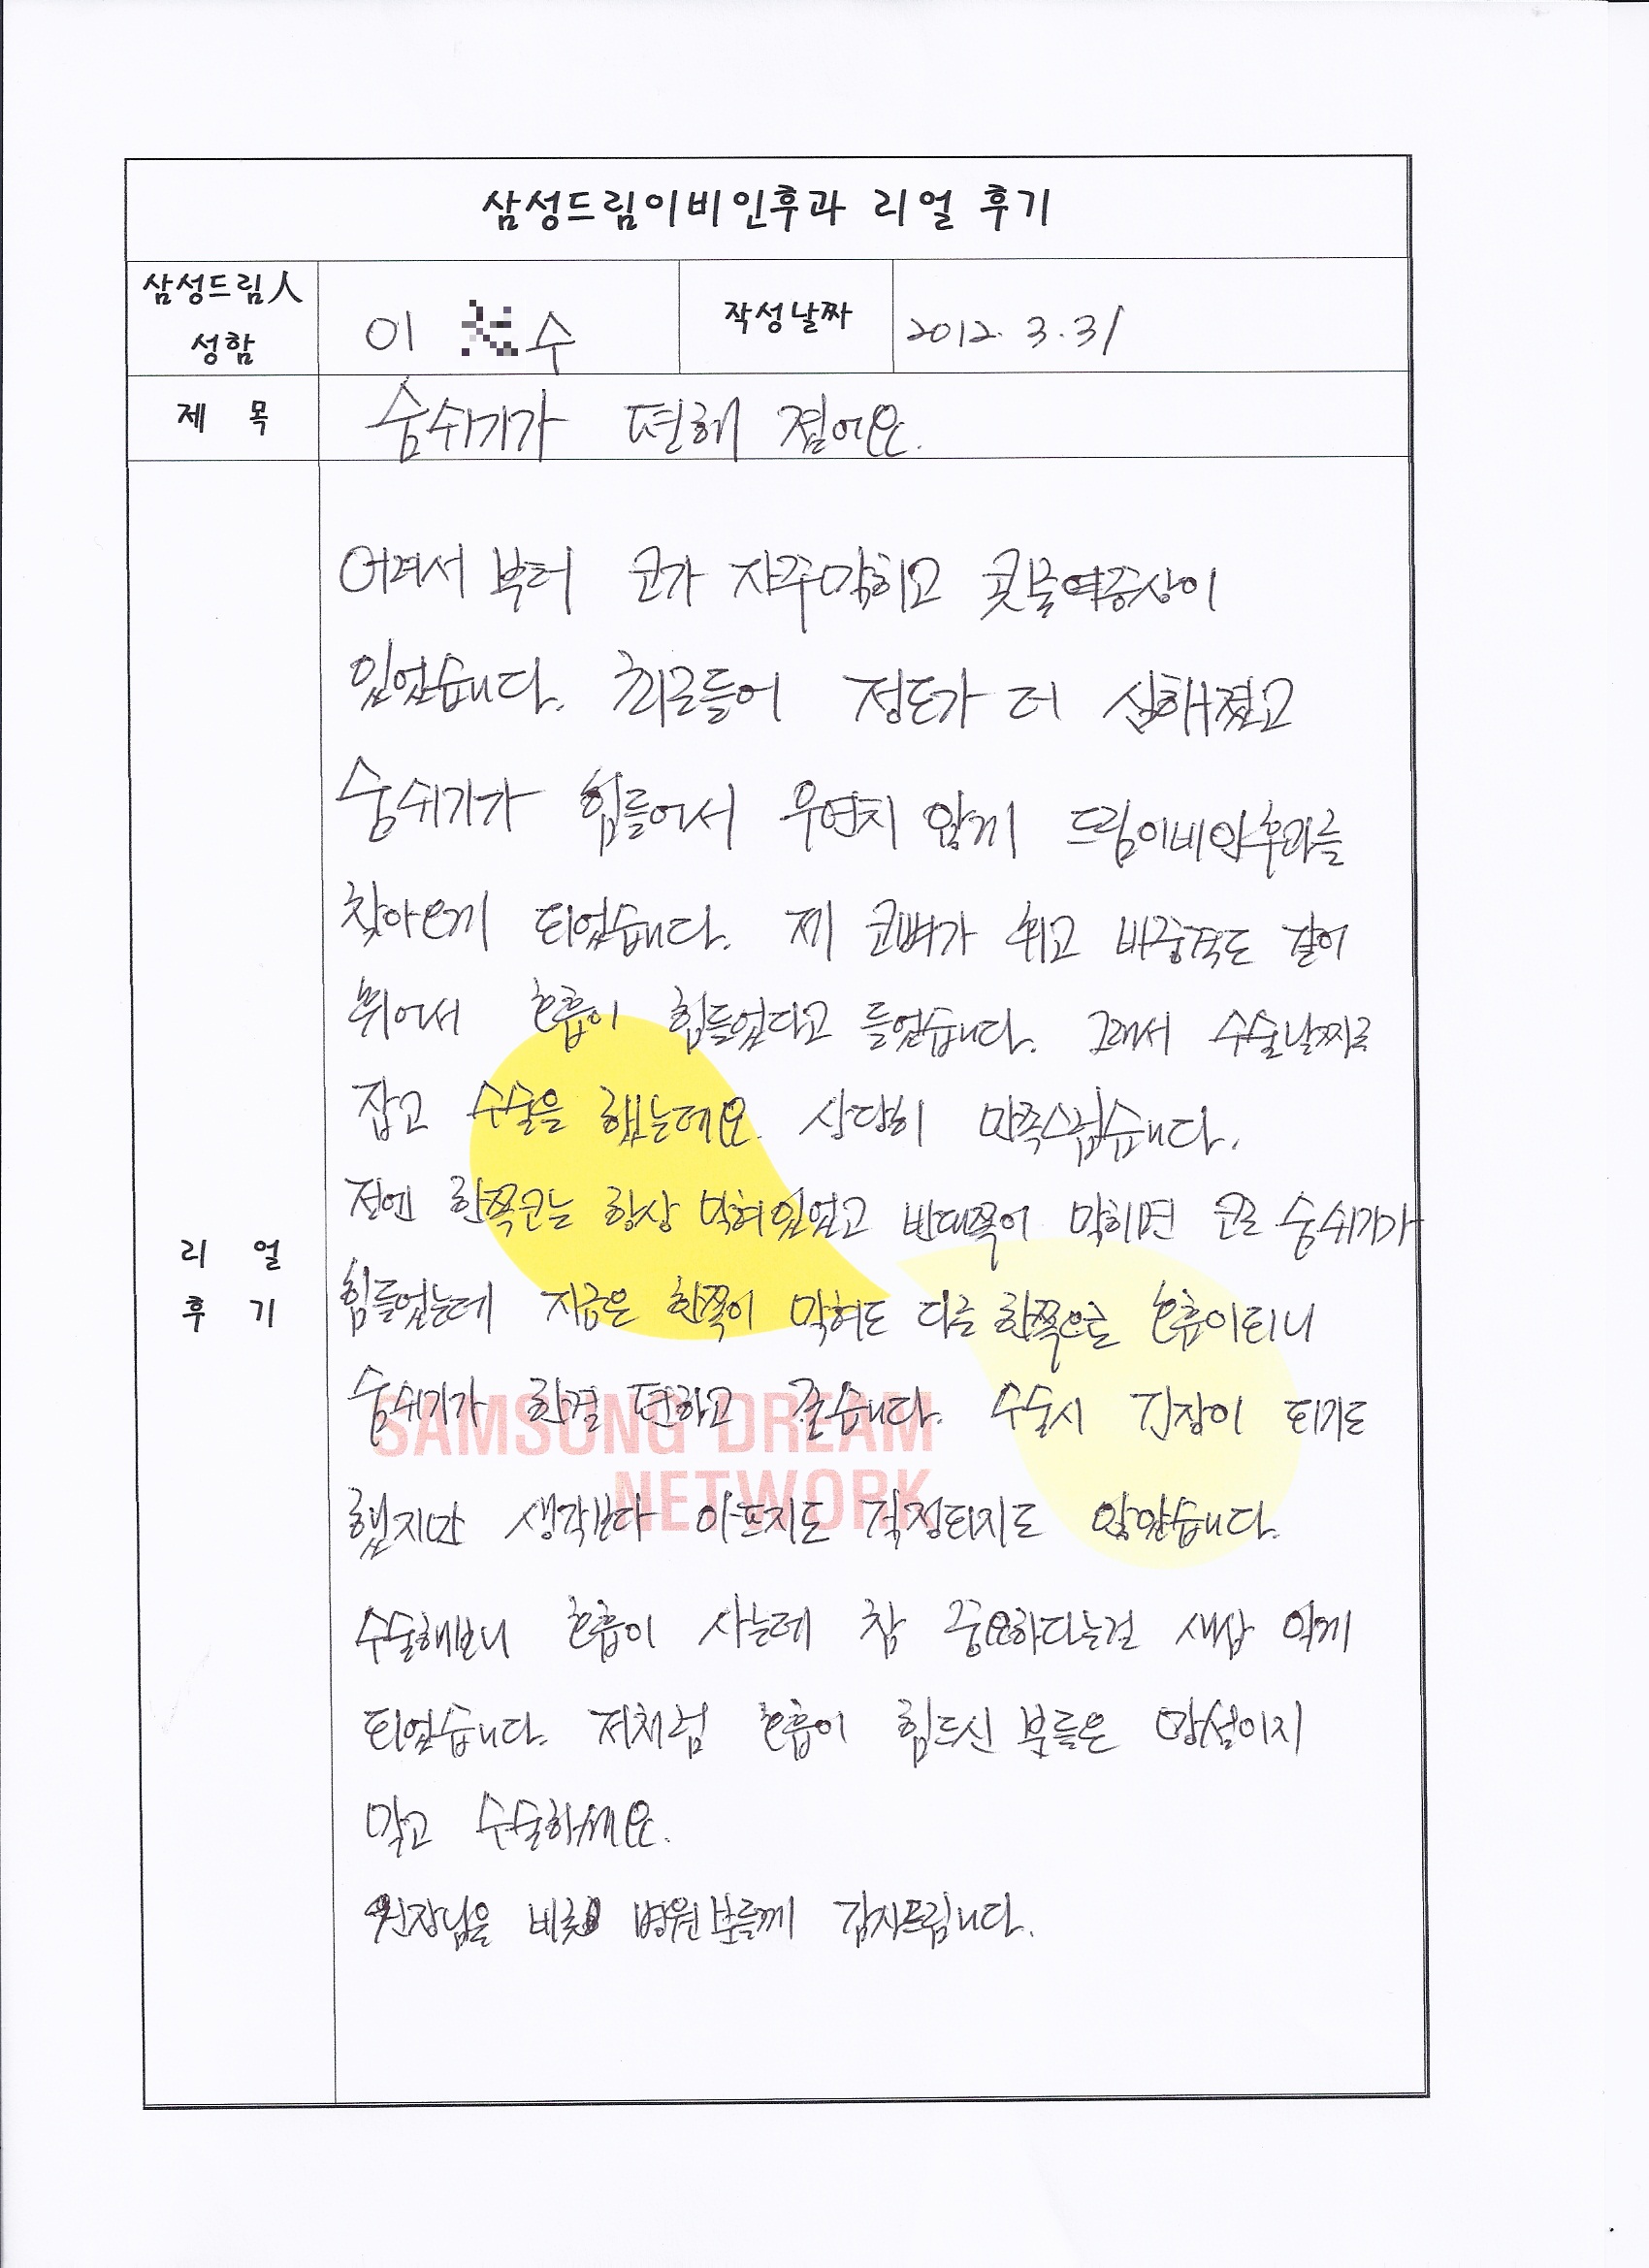 삼성드림이비인후과 리얼 후기
삼성드림人 성함
이 수
작성날짜
2012. 3. 31
제 목
숨쉬기가 편해 졌어요.
리 얼 후 기
어려서 부터 코가 자주막히고 콧물여증상이
있었습니다. 최근들어 정도가 더 심해졌고
숨쉬기가 힘들어서 우연치 않게 드림이비인후과를
찾아오게 되었습니다. 제 코뼈가 휘고 비중격도 같이
휘어서 호흡이 힘들었다고 들었습니다. 그래서 수술날짜를
잡고 수술을 했는데요. 상당히 만족스럽습니다.
전엔 한쪽코는 항상 막혀있었고 반대쪽이 막히면 코로 숨쉬기가
힘들었는데 지금은 한쪽이 막혀도 다른 한쪽으로 호흡이되니
숨쉬기가 한결 편하고 좋습니다. 수술시 긴장이 되기도
했지만 생각보다 아프지도 걱정되지도 않았습니다.
수술해보니 호흡이 사는데 참 중요하다는걸 새삼 알게
되었습니다. 저처럼 호흡이 힘드신 분들은 망설이지
말고 수술하세요.
원장님을 비롯 병원분들께 감사드립니다.
SAMSUNG DREAM
NETWORK